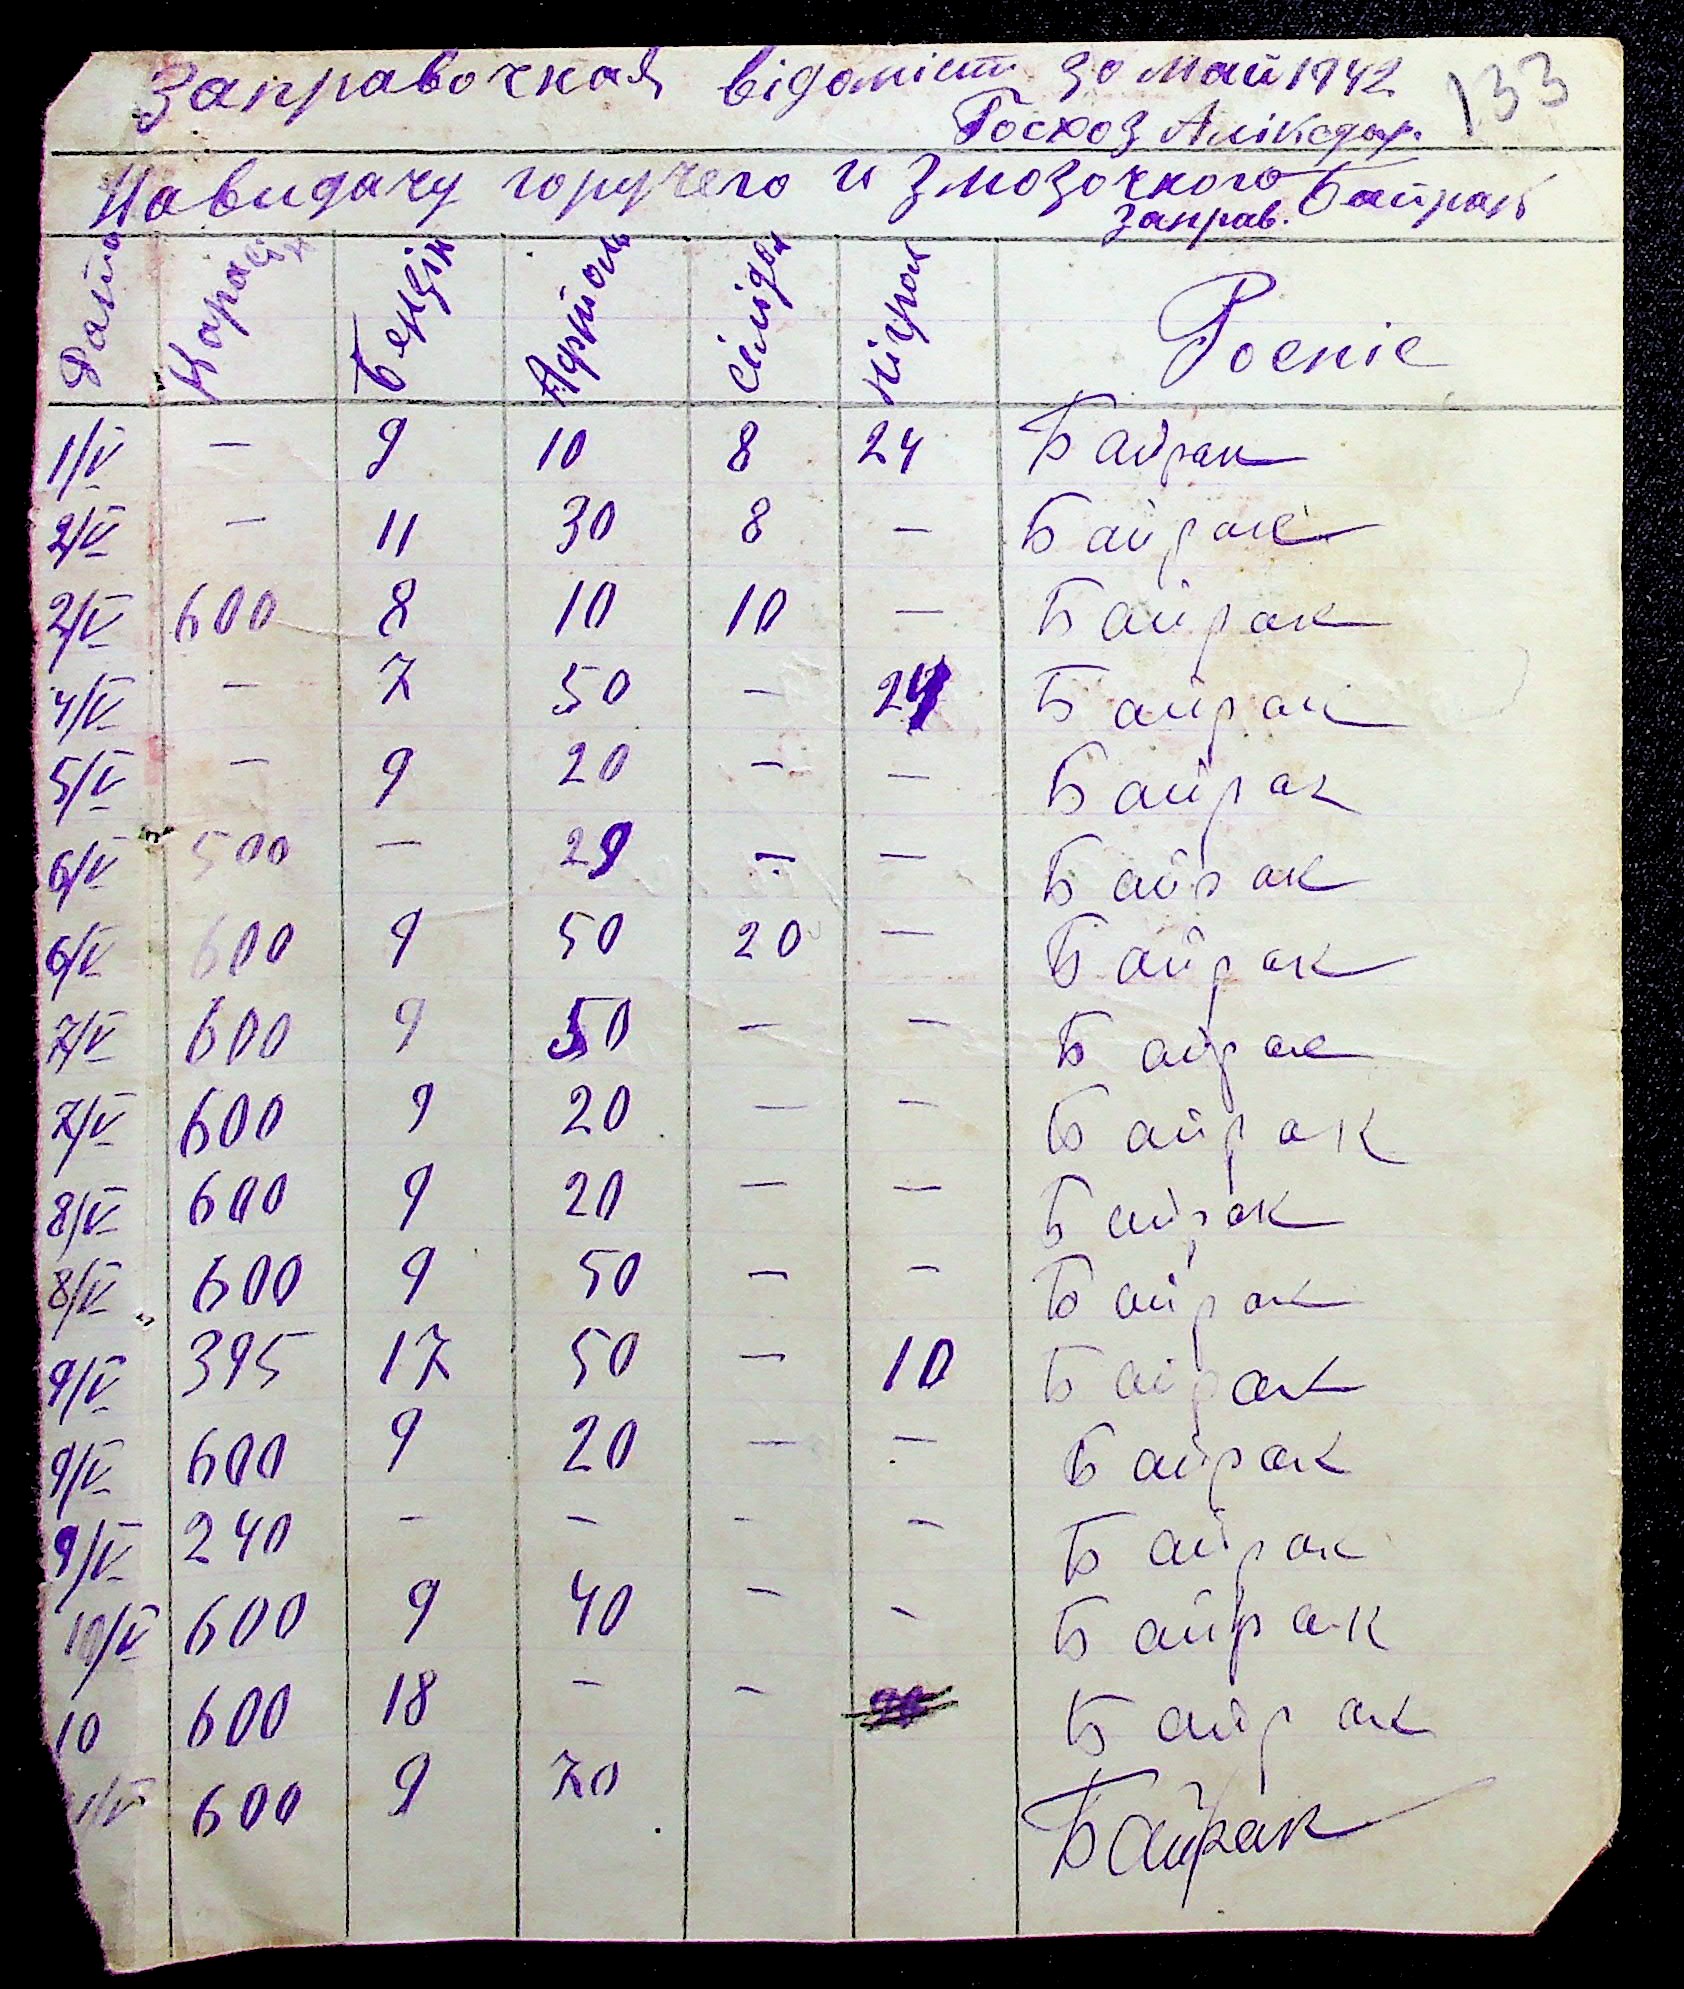 Заправочная відоміст за май 1942
133
Госхоз Алікедар.
На видачу горучего и змозочного
Заправ. Байрак
Дата Карасін Бензін Афтоль Сілідол Нігрол Роспіс
1/V — 9 10 8 24 Байрак
2/V — 11 30 8 — Байрак
2/V 600 8 10 10 — Байрак
4/V — 7 50 — 24 Байрак
5/V — 9 20 — — Байрак
6/V 500 — 29 — — Байрак
6/V 600 9 50 20 — Байрак
7/V 600 9 50 — — Байрак
7/V 600 9 20 — — Байрак
8/V 600 9 20 — — Байрак
8/V 600 9 50 — — Байрак
9/V 395 17 50 — 10 Байрак
9/V 600 9 20 — — Байрак
9/V 240 — — — — Байрак
10/V 600 9 40 — — Байрак
10 600 18 — — Байрак
11/V 600 9 70 Байрак